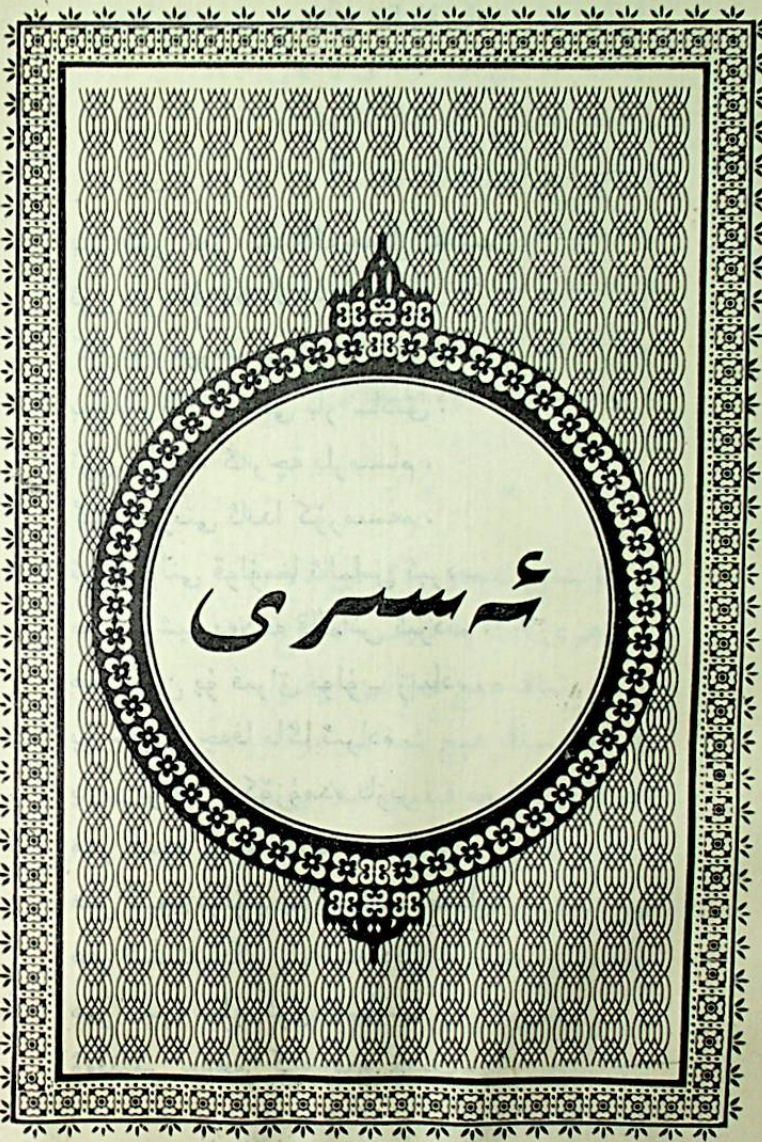 ئەسىرى